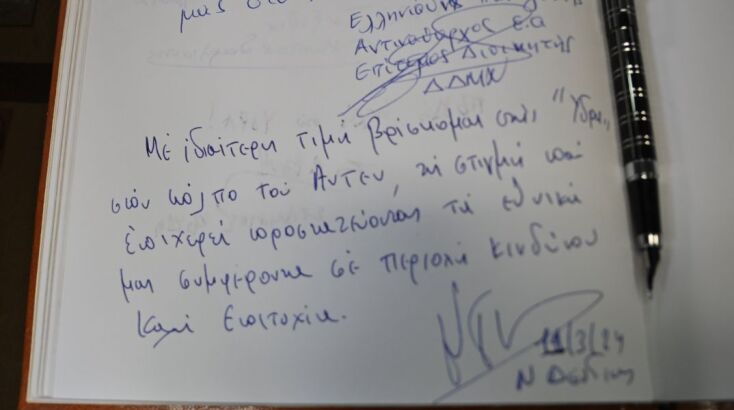 μας στο
Ελληνικής
Αντιναύαρχος ε.α
Επίτιμος Διοικητής
ΔΔΜΧ
Με ιδιαίτερη τιμή βρίσκομαι στην "Ύδρα"
στον κόλπο του Άντεν, τη στιγμή που
επιχειρεί προστατεύοντας τα εθνικά
μας συμφέροντα σε περιοχή κινδύνου
Καλή Επιτυχία.
11/3/24
Ν Δένδιας